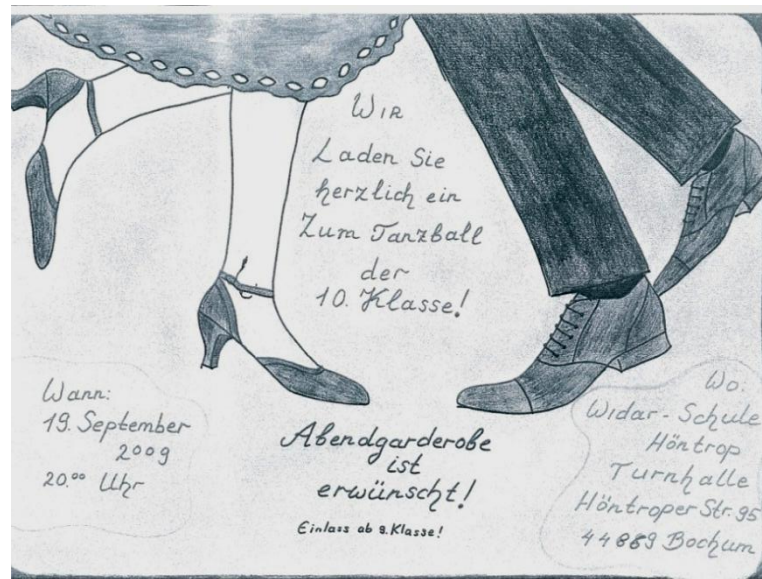 Wir
Laden Sie
herzlich ein
Zum Tanzball
der
10. Klasse!
Wann:
19. September
2009
20.⁰⁰ Uhr
Abendgarderobe
ist
erwünscht!
Einlass ab 9. Klasse!
Wo:
Widar-Schule
Höntrop
Turnhalle
Höntroper Str. 95
44869 Bochum